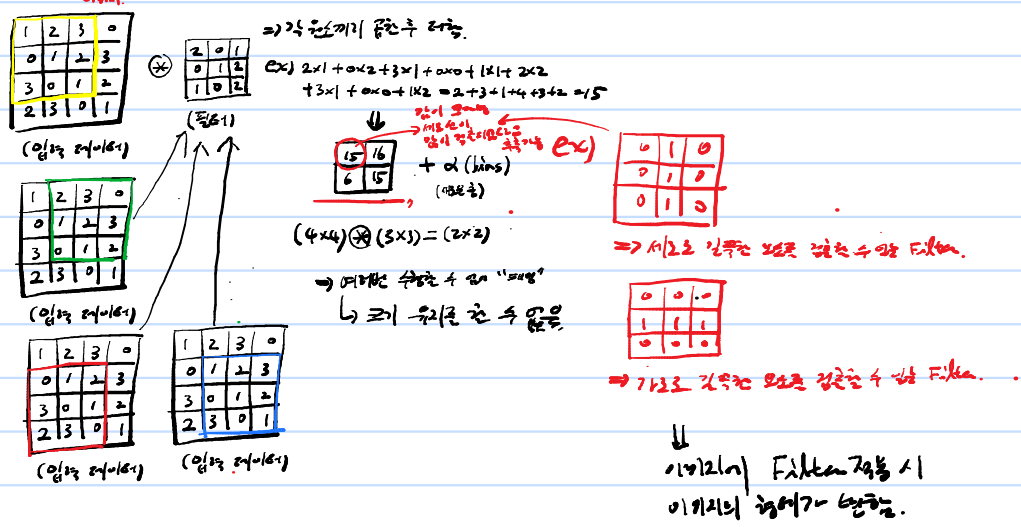 1 2 3 0
0 1 2 3
3 0 1 2
2 3 0 1
(입력 데이터)
⊛
2 0 1
0 1 2
1 0 2
(필터)
⇒ 각 원소끼리 곱한 후 더함.
ex) 2×1 + 0×2 + 3×1 + 0×0 + 1×1 + 2×2
+ 3×1 + 0×0 + 1×2 = 2+3+1+4+3+2 = 15
⇓
값이
세로선이
15 16
6 15
+ α (bias)
(4×4) ⊛ (3×3) = (2×2)
⇒ 여러번 수행할 수 없어
↳ 크기 유지를 할 수 없음
1 2 3 0
0 1 2 3
3 0 1 2
2 3 0 1
(입력 데이터)
1 2 3 0
0 1 2 3
3 0 1 2
2 3 0 1
(입력 데이터)
1 2 3 0
0 1 2 3
3 0 1 2
2 3 0 1
(입력 데이터)
ex)
0 1 0
0 1 0
0 1 0
⇒ 세로로 길쭉한 요소를 검출할 수 있는 Filter.
0 0 0
1 1 1
0 0 0
⇒ 가로로 길쭉한 요소를 검출할 수 있는 Filter.
⇓
이미지에 Filter 적용 시
이미지의 형태가 변함.